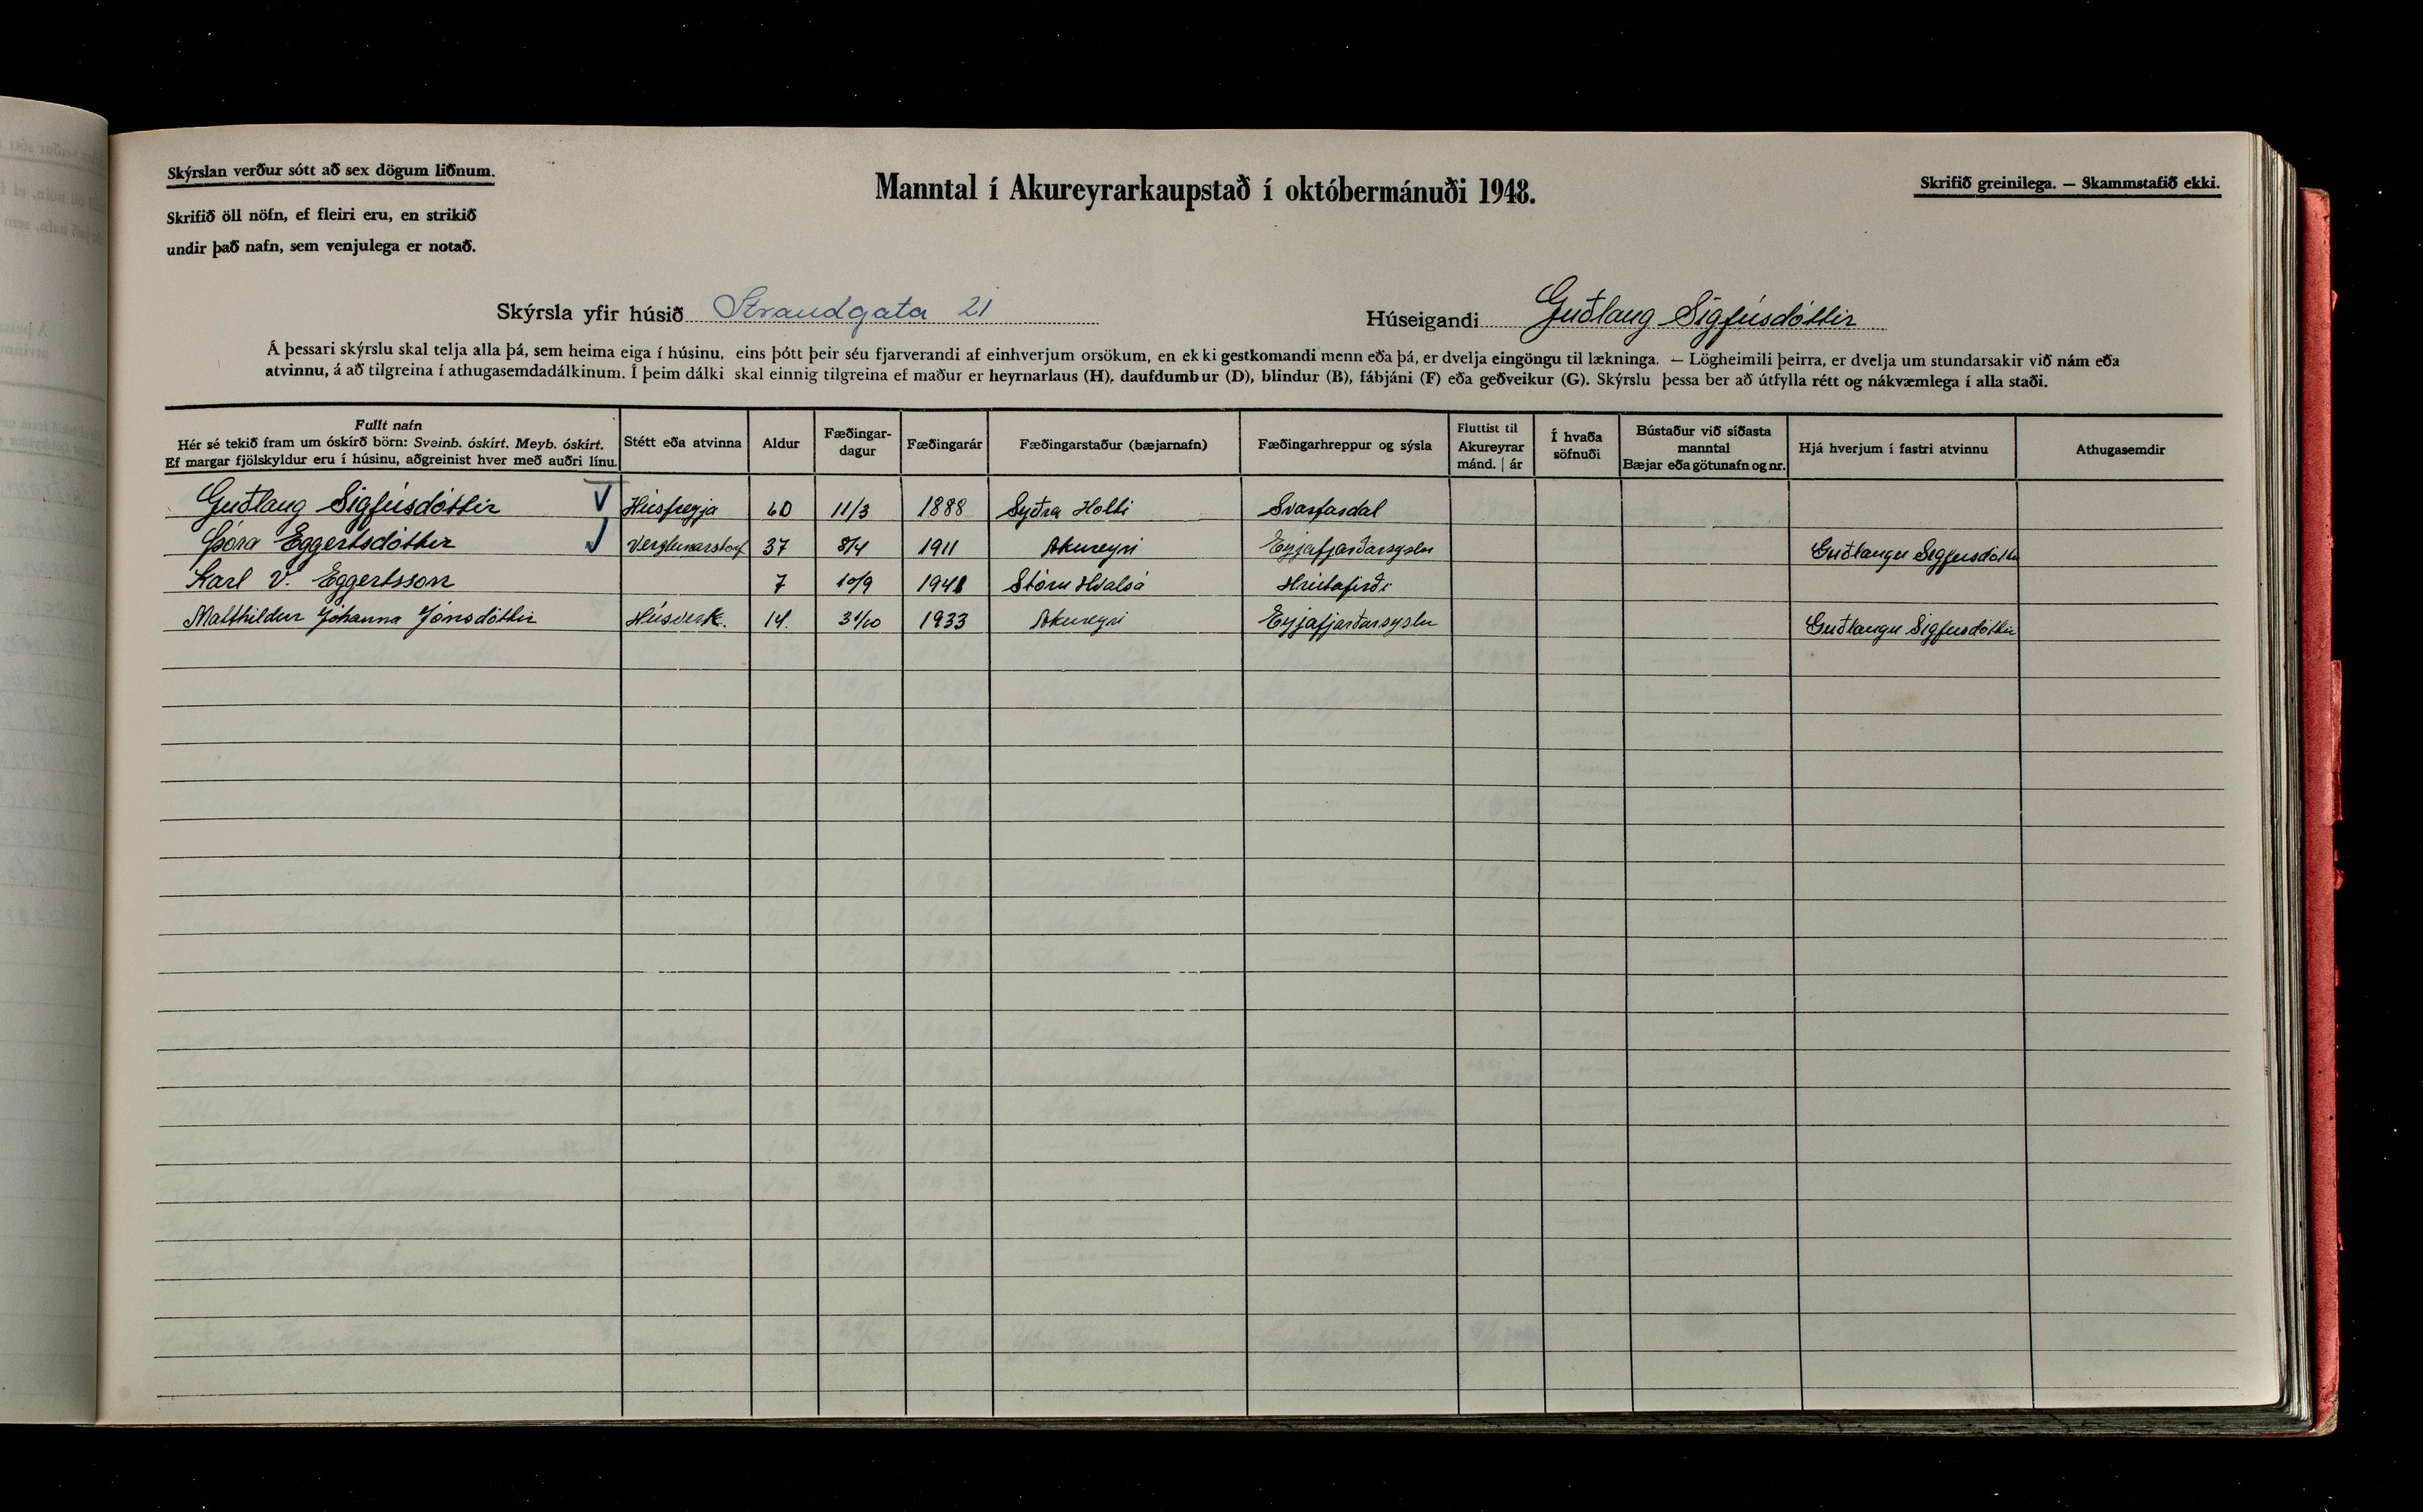 Skýrslan verður sótt að sex dögum liðnum.
Skrifið öll nöfn, ef fleiri eru, en strikið
undir það nafn, sem venjulega er notað.
Manntal í Akureyrarkaupstað í októbermánuði 1948.
Skrifið greinilega. — Skammstafið ekki.
Skýrsla yfir húsið Strandgata 21
Húseigandi Guðlaug Sigfúsdóttir
Á þessari skýrslu skal telja alla þá, sem heima eiga í húsinu, eins þótt þeir séu fjarverandi af einhverjum orsökum, en ekki gestkomandi menn eða þá, er dvelja eingöngu til lækninga. — Lögheimili þeirra, er dvelja um stundarsakir við nám eða
atvinnu, á að tilgreina í athugasemdadálkinum. Í þeim dálki skal einnig tilgreina ef maður er heyrnarlaus (H), daufdumbur (D), blindur (B), fábjáni (F) eða geðveikur (G). Skýrslu þessa ber að útfylla rétt og nákvæmlega í alla staði.
Fullt nafn
Hér sé tekið fram um óskírð börn: Sveinb. óskírt. Meyb. óskírt.
Ef margar fjölskyldur eru í húsinu, aðgreinist hver með auðri línu.
Stétt eða atvinna
Aldur
Fæðingar-
dagur
Fæðingarár
Fæðingarstaður (bæjarnafn)
Fæðingarhreppur og sýsla
Fluttist til
Akureyrar
mánd. | ár
Í hvaða
söfnuði
Bústaður við síðasta
manntal
Bæjar eða götunafn og nr.
Hjá hverjum í fastri atvinnu
Athugasemdir
Guðlaug Sigfúsdóttir V Húsfreyja 60 11/3 1888 Syðra Holti Svarfardal
Þóra Eggertsdóttir Verslunarstorf 37 8/4 1911 Akureyri Eyjafjarðarsyslu Guðlaugu Sigfusdóttir
Karl V. Eggertsson 7 10/9 1941 Stóru Hvalsá Hrútafirði
Matthildur Jóhanna Jónsdóttir Húsverk. 14. 31/10 1933 Akureyri Eyjafjarðarsyslu Guðlaugu Sigfusdóttir